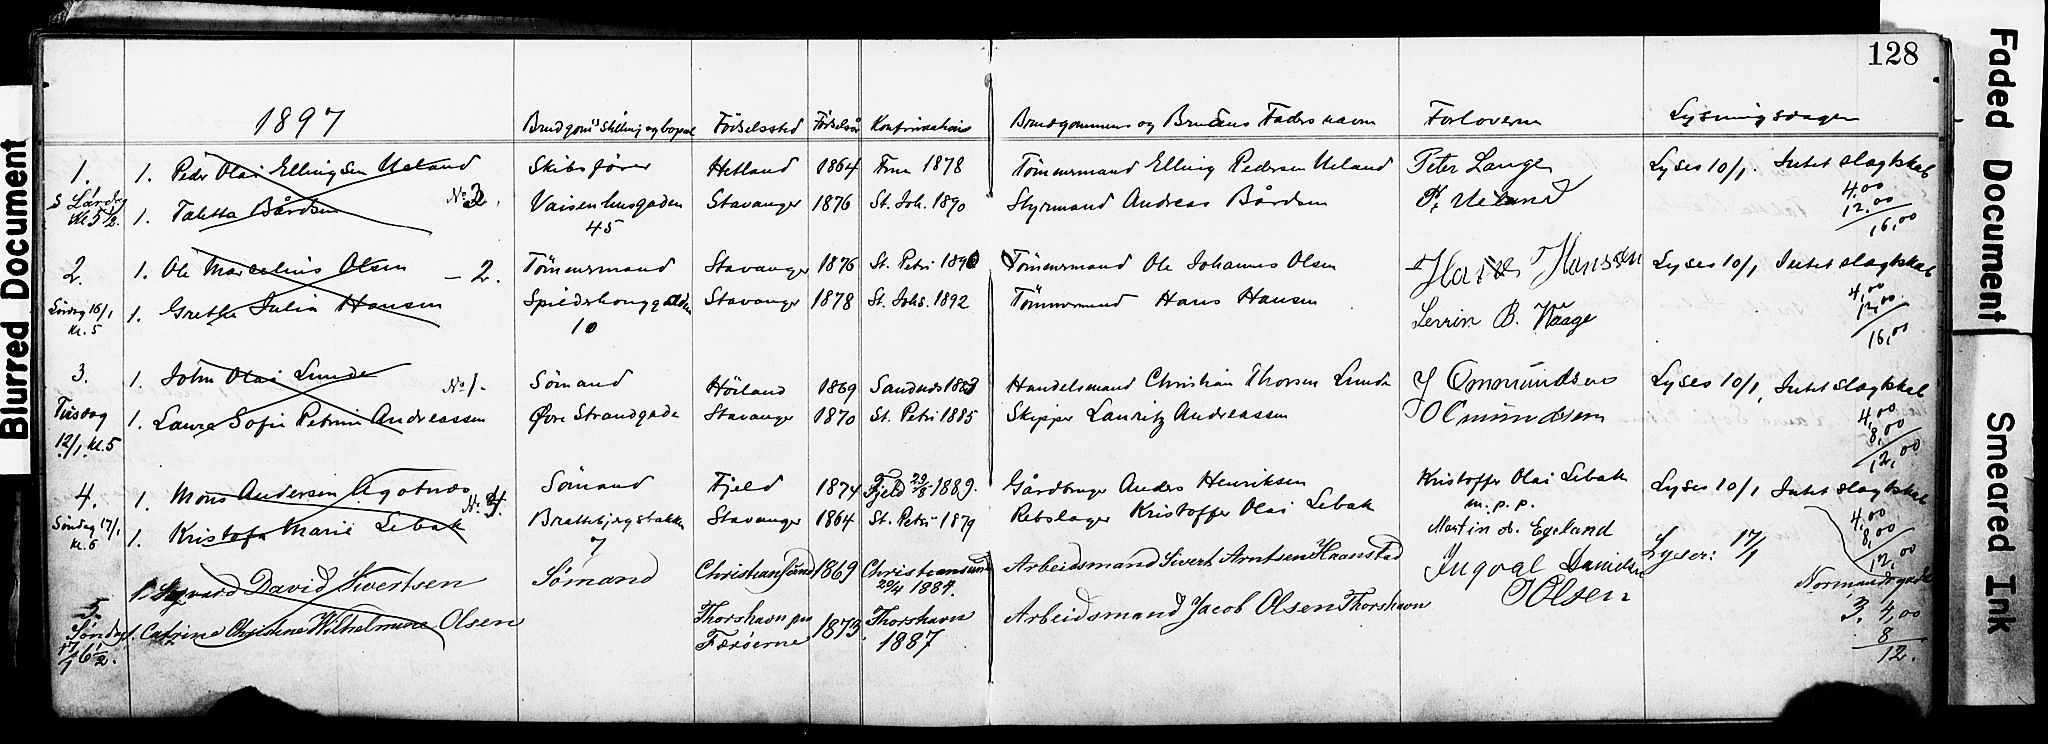 128
1897
Brudgoms Stilling og bopæl Fødselssted Fødselsår Konfirmations Brudgommens og Brudens Faders navn Forloverne Lysningsdagen
1. 1. Peder Olai Ellingsen Ueland Skibsfører Hetland 1864 Frue 1878 Tømmermand Elling Pedersen Ueland Peter Lange Lyses 10/1. Intet slægtskab
Kl. 5 1/2. 1. Taletta Bårdsen No 3. Vaisenhusgaden Stavanger 1876 St. Joh. 1890 Styrmand Andreas Bårdsen P. Ueland 4,00
45 12,00
16,00
2. 1. Ole Marselius Olsen - 2. Tømmermand Stavanger 1876 St. Petri 1890 Tømmermand Ole Johannes Olsen Hans Hansen Lyses 10/1 Intet slægtskab
Søndag 16/1 1. Grethe Julia Hansen Stavanger 1878 St. Johs. 1892 Tømmermand Hans Hansen 4,00
kl. 5 10 B. Waage 12,00
16,00
3. 1. John Olai Lunde No 1. Sømand Høiland 1869 Sandnes Handelsmand Christian Thorsen Lunde J Omundsen Lyses 10/1, Intet slægtskab
Tirsdag 1. Laura Sofie Petrine Andreassen Øvre Strandgade Stavanger 1870 St. Petri 1885 Skipper Lauritz Andreassen O Omundsen 4,00
12/1, kl. 5 8,00
12,00
4. 1. Mons Andersen Agotnes No 4. Sømand Fjeld 1874 Fjeld 29/5 1889. Gårdbruger Anders Henriksen Kristoffer Olai Lebak Lyses 10/1 Intet slægtskab
m. p. p.
Søndag 17/1 1. Kristofa Marie Lebak Brattebjergbakken Stavanger 1864 St. Petri 1879 Rebslager Kristoffer Olai Lebak Martin O. Egeland 4,00
kl. 6 7 8,00
12,00
5. 1. Sigvard David Sivertsen Sømand Christiansund 1869 Christiansund Arbeidsmand Sivert Arntsen Haanstad Ingval Danielsen Lyser: 17/1
20/4 1884. Normandsgade
Søndag 1. Catrine Christene Wilhelmine Olsen Thorshavn paa 1873 Thorshavn Arbeidsmand Jacob Olsen Thorshavn J Olsen 3. 4,00
17/1 6 1/2. Færøerne 1887 8
12.
Blurred Document
Faded Document
Smeared Ink